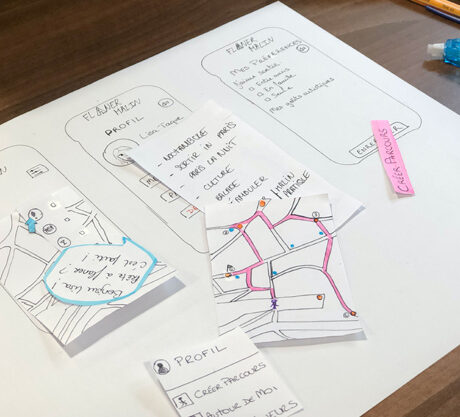 FLÂNER
MALIN
MES PRÉFÉRENCES
J'aimes sortir
Entre amis
En famille
Seule
Mes goûts artistiques
FLÂNER
MALIN
PROFIL
Léa Jaque
- NOCTAMBULE
- SORTIR IN PARIS
- PARIS LA NUIT
- CULTURE
- BALADE
MALIN
PRATIQUE
CRÉER PARCOURS
Bonjour Lisa.
Prête à flâner ?
C'est parti !
PROFIL
CRÉER PARCOURS
AUTOUR DE MOI